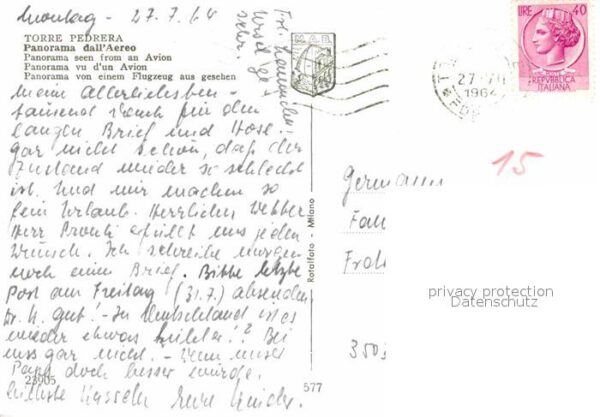 Montag - 27.7.64
TORRE PEDRERA
Panorama dall'Aereo
Panorama seen from an Avion
Panorama vu d'un Avion
Panorama von einem Flugzeug aus gesehen
Meine Allerliebsten -
tausend Dank für den
langen Brief und Hose.
gar nicht schön, daß der
Zustand wieder so schlecht
ist. Und wir machen so
fein Urlaub. Herrliches Wetter
Herr erfüllt uns jeden
Wunsch. Ich schreibe morgen
noch einen Brief. Bitte letzte
Post am Freitag (31.7.) absenden
gut. - In Deutschland ist es
wieder etwas kühler!? Bei
uns gar nicht. - Wenn unser
Papa doch besser würde.
23905
Kinder
577
Rotalfoto - Milano
M.A.B.
LIRE 40
REPVBBLICA
ITALIANA
27-VII
1964
15
Germany
Fam
350
privacy protection
Datenschutz